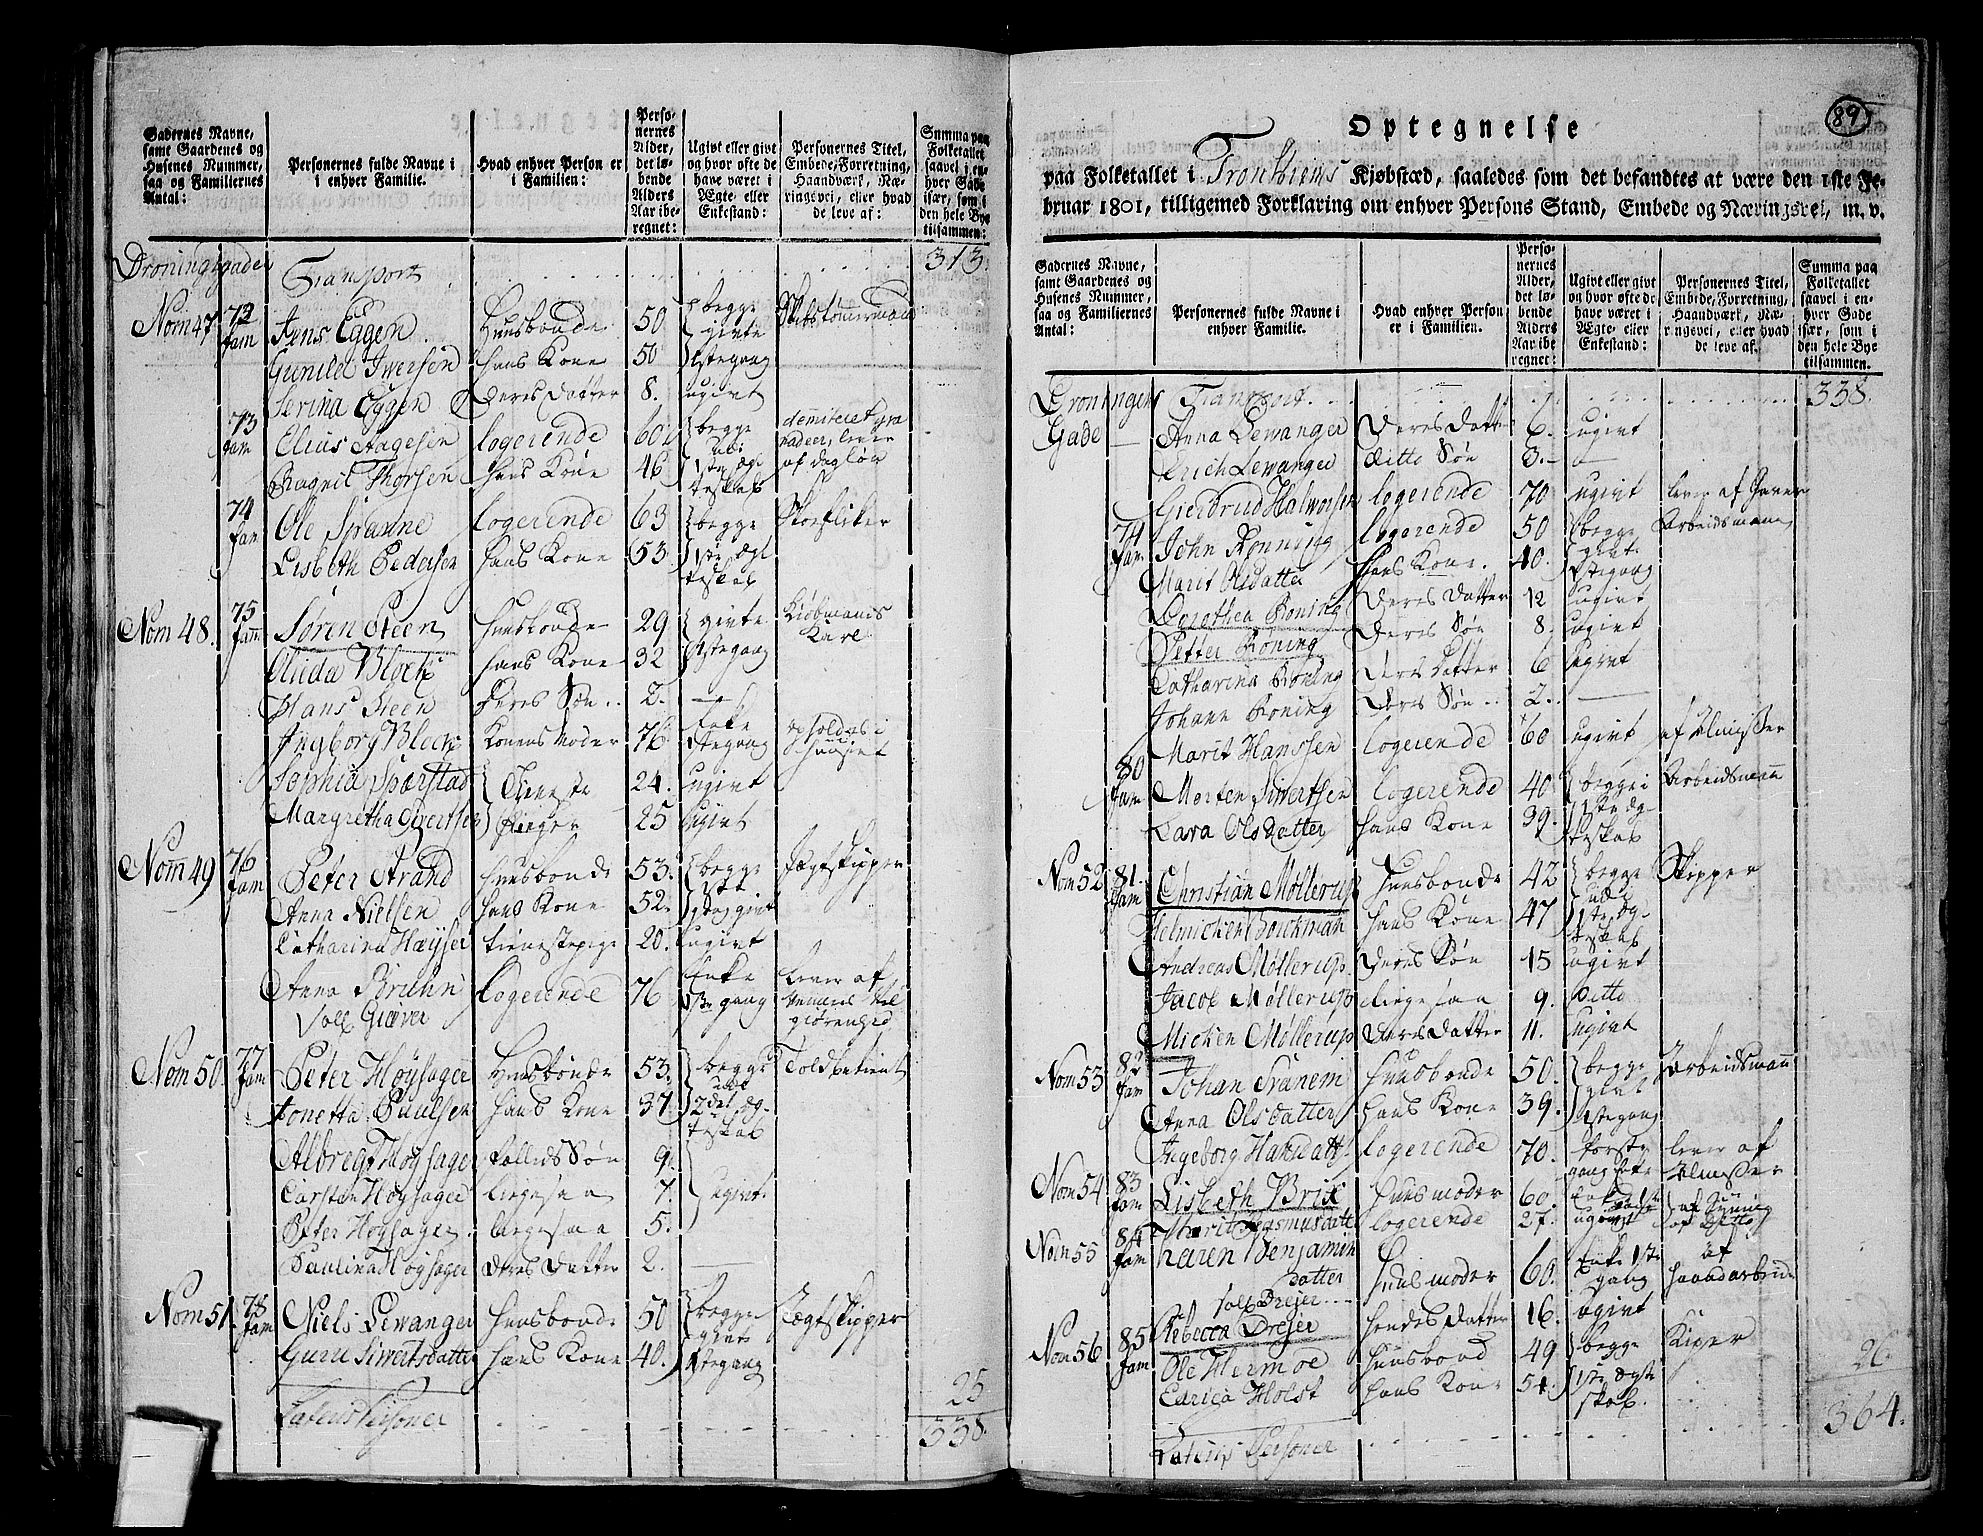 Gadernes Navne, samt Gaardenes og Husenes Nummer, saa og Familiernes Antal:
Personernes fulde Navne i i enhver Familie.
Hvad enhver Person er i Familien:
Personernes Alder, det løbende Alders Aar iberegnet:
Ugivt eller givt og hvor ofte de have været i Ægte- eller Enkestand:
Personernes Titel, Embede, Forretning, Haandværk, Næringsvei, eller hvad de leve af:
Summa paa Folketallet saavel i enhver Gade især, som i den hele Bye tilsammen:
Transport 313.
Nom 47 72 fam Jens Eggen Huusbonde 50 begge givte
hans Kone 50 1ste gang
Serina Eggen Deres Datter 8. ugivt
73 fam Elius Aagesen logerende 60
Ragnil Thorsen hans Kone 46
74 fam Ole logerende 63 begge Skoeflicker
Lisbeth Pedersen hans Kone 53
Nom 48. 75 fam Søren Steen Huusbonde 29 givte Kiøbmands Karl
hans Kone 32 1ste gang
Hans Steen Deres Søn 2. —
Ingborg Konens Moder 76 Enke 1ste gang opholdes i huuset
Sophia Sparstad Tieneste 24. ugivt
Margretha Piger 25 ugivt
Nom 49 76 fam Peter Strand Huusbonde 53. begge Jægtskipper
Anna Nielsen hans Kone 52. givt
Catharina tienestepige 20. ugivt
Anna Bruhn Logerende 76 Enke lever af
Sall Giæver gang
Nom 50 77 fam Peter Høysager Huusbonde 53. begge Toldbetient
Jonetta Paulsen hans Kone 37. 2det Ægteskab
Albregt Høysager Søn 9.
Carsten Høysager ligesaa 7. ugivt
Peter Høysager ligesaa 5.
Paulina Høysager Deres Datter 2. —
Nom 51. 78 fam Niels Lewanger Huusbonde 50 begge givte Jægtskipper
Guru Siwertsdatter hans Kone 40. 1ste gang
25
Lateris Personer 338
89
Optegnelse
paa Folketallet i Tronhiems Kjøbstæd, saaledes som det befandtes at være den 1ste Februar 1801, tilligemed Forklaring om enhver Persons Stand, Embede og Næringsvei, m. v.
Gadernes Navne, samt Gaardenes og Husenes Nummer, saa og Familiernes Antal:
Personernes fulde Navne i enhver Familie.
Hvad enhver Person er i Familien.
Personernes Alder, det løbende Alders Aar iberegnet:
Ugivt eller givt og hvor ofte de have været i Ægte- eller Enkestand:
Personernes Titel, Embide, Forretning, Haandværk, Næringevei, eller hvad de leve af.
Summa paa Folketallet saavel i enhver Gade især, som i den hele Bye tilsammen.
Dronningens Transport 338.
Gade — Anna Lewanger Deres Datter 6. ugivt
Erich Lewanger ditto Søn 3. —
Giertrud Halworsen logerende 70 ugivt lever af
fam John Rønning logerende 50 begge Arbeidsmann
Marit Olsdatter hans Kone. 40. givt 1ste gang
Dorothea Roning Deres Datter 12 ugivt
Petter Roning Deres Søn 8. ugivt
Catharina Roning Deres Datter 6 ugivt
Johann Roning Deres Søn 2. —
Marit Hanssen logerende 60 ugivt af Almisser
80 fam Morten Siwertsen logerende 40 begge i Arbeidsmann
Olsdatter hans Kone 39. 1ste Ægteskab
Nom 52 81 fam Christian Møllerup Huusbonde 42 begge Skipper
hans Kone 47 1ste Ægteskab
Andreas Møllerup. Deres Søn 15 ugivt
Jacob Møllerup ligesaa 9. ditto
Micken Møllerup Deres Datter 11. ugivt
Nom 53 82 fam Johan Tranem Huusbonde 50. begge Arbeidsmann
Anna Olsdatter hans Kone 39. givt 1ste gang
Ingeborg Hansdatt. logerende 70. første gang Enke lever af Almisser
Nom 54 83 fam Lisbeth Brix Huusmoder 60
Marit Rasmusdatte logerende 27. ugivt
Nom 55 84 fam Karen Benjamin datter Huusmoder 60. Enke 1ste gang af haandarbeide
Sall Drejer
Rebecca Drejer hendes Datter 16. ugivt
Nom 56 85 fam Ole Hermoe Huusbond 49 begge Kiper
Holst hans Kone 54. 1ste Ægteskab.
26
364.
Lateris Personer